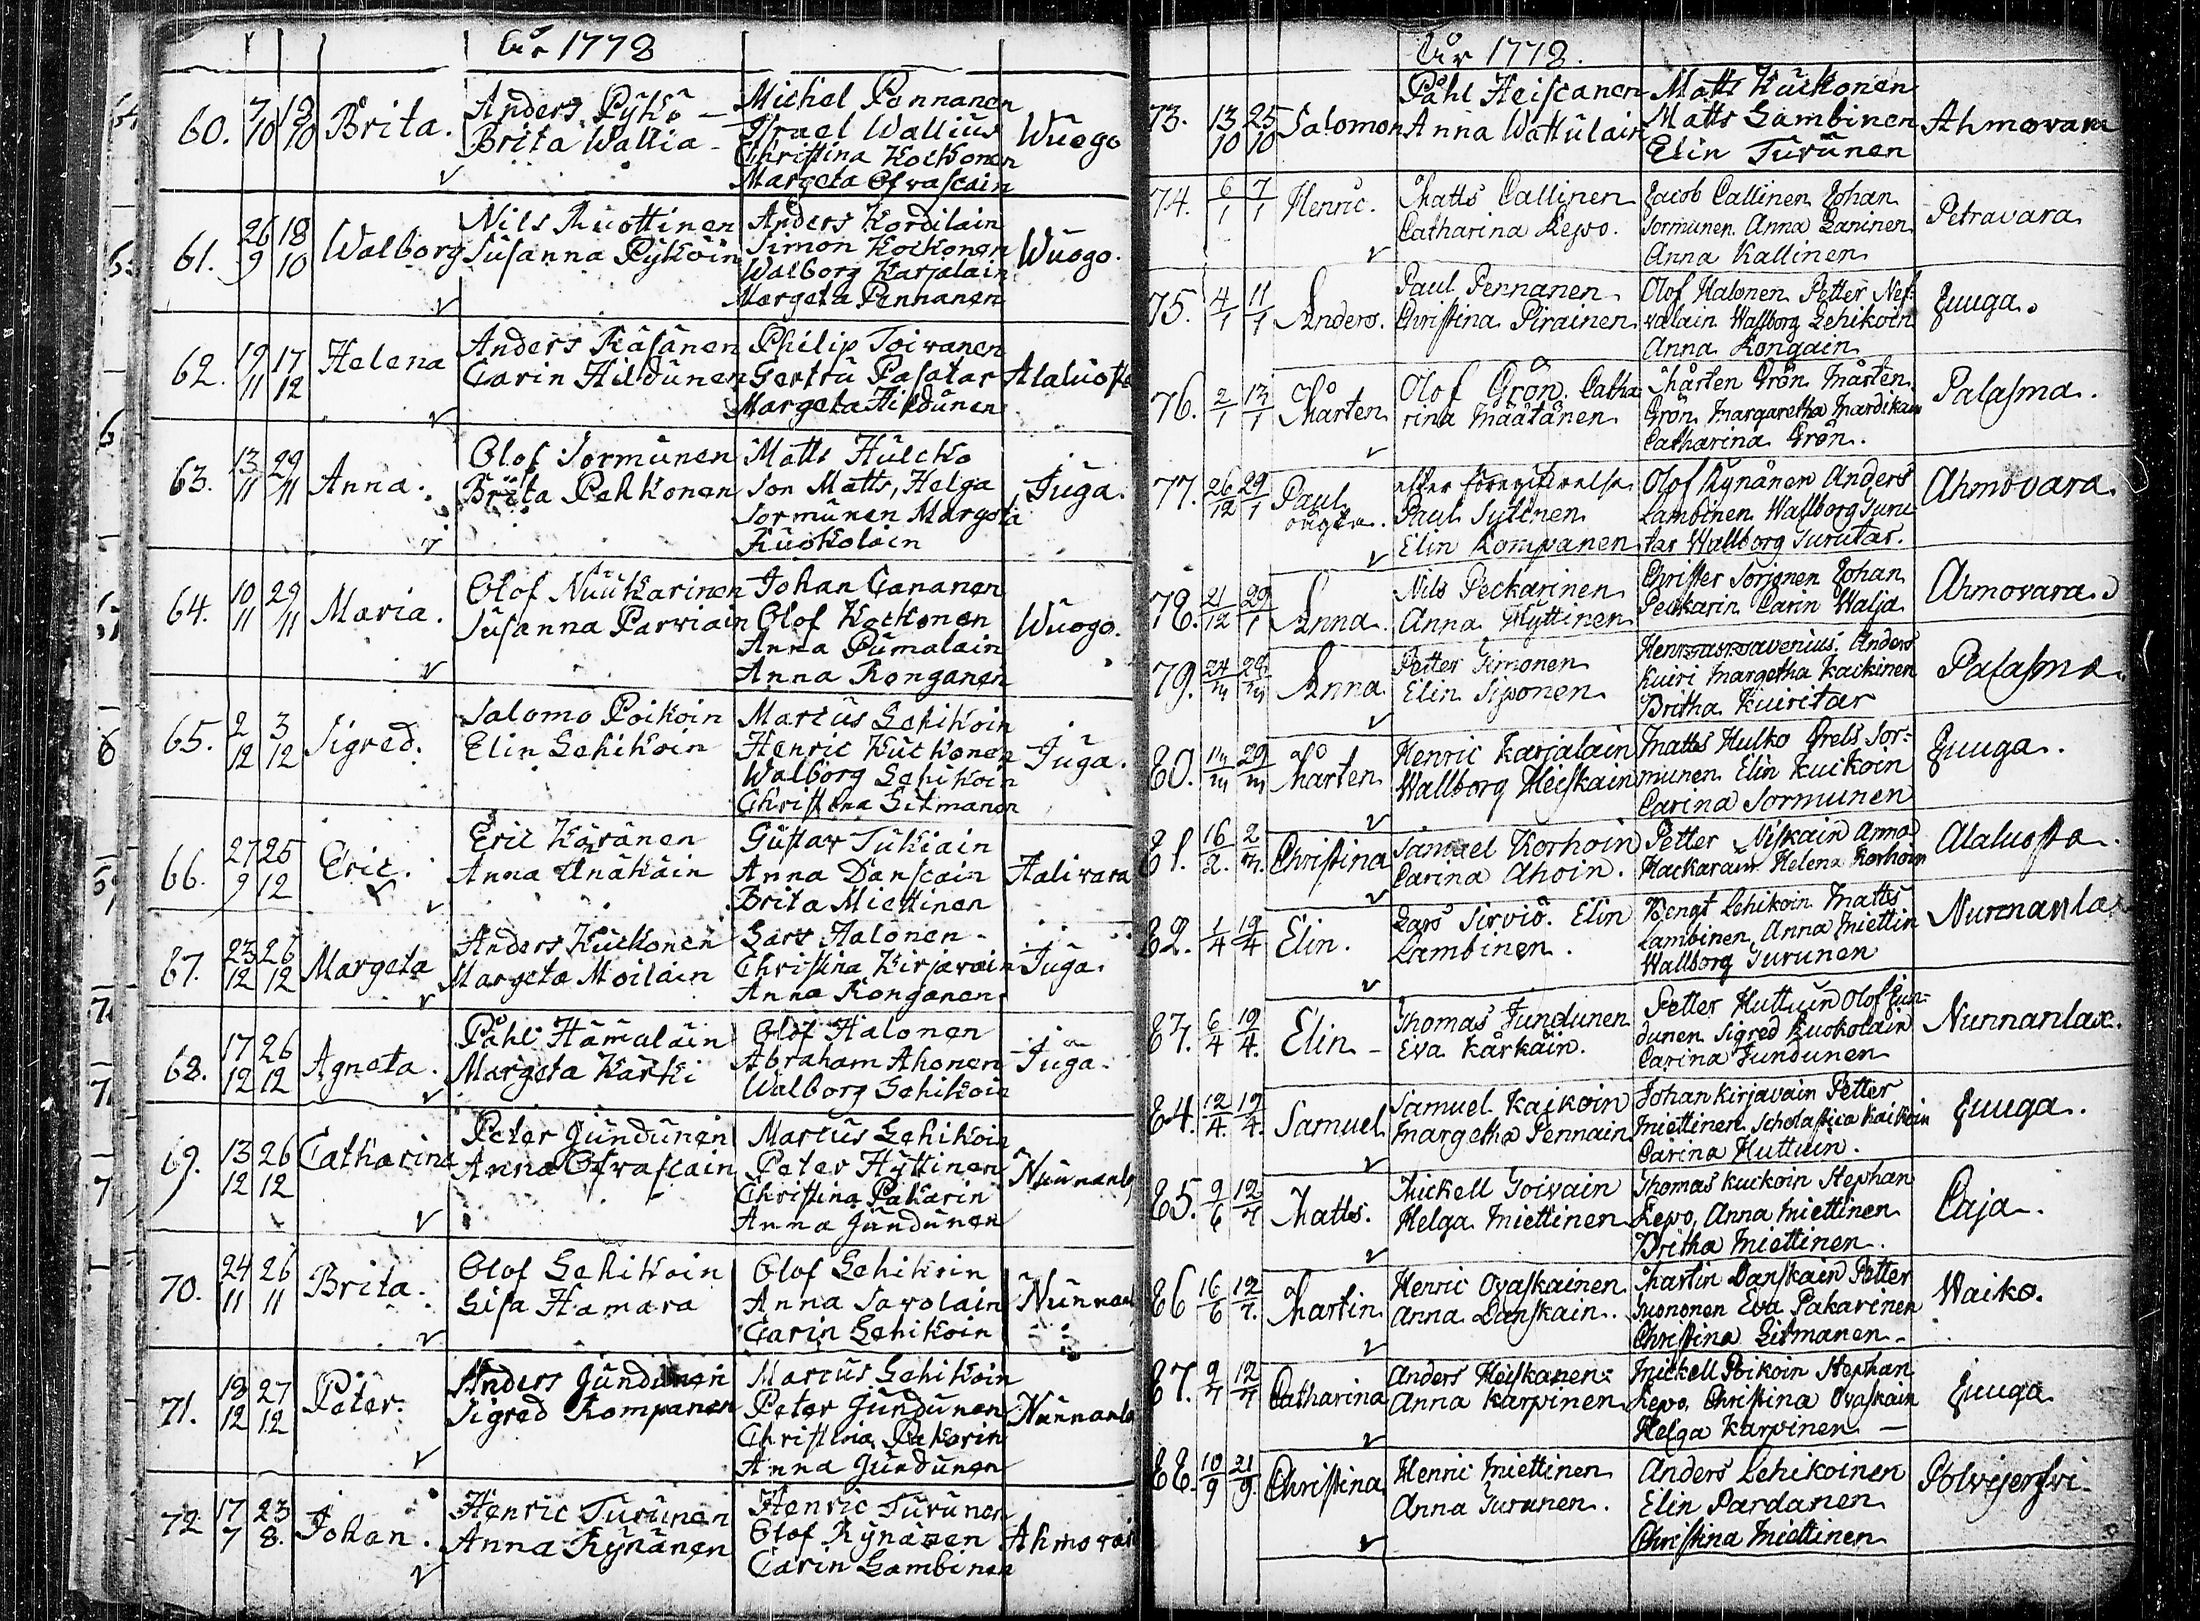 År 1778
60. 7/10 18/10 Brita. Anders Pÿkö — Brita Wallia - Michel Pennanen Israel Wallius Christina Kockonen Margeta Ofvascain Wuogo
61. 26/9 18/10 Walborg Nils Ruottinen Susanna Pÿköin Anders Kordilain Simon Kockonen Walborg Karjalain Margeta Pennanen Wuogo.
62. 19/11 17/12 Helena Anders Räsänen Carin Hildunen Philip Toivanen Gertru Pasatar Margeta Hildunen Alaluosta
63. 13/11 29/11 Anna. Olof Sormunen Brita Pekkonen Matts Hulcko Son Matts, Helga Sormunen Margeta Ruokolain Juga.
64. 10/11 29/11 Maria. Olof Nuukarinen Susanna Parviain Johan Cananen Olof Kockonen Anna Pumalain Anna Ronganen Wuogo.
65. 2/12 3/12 Sigred. Salomo Poikoin Elin Lehikoin Marcus Lehikoin Henric Kuckonen Walborg Lehikoin Christina Litmanen Juga.
66. 27/9 25/12 Eric. Eric Käränen Anna Änäkäin Gustav Tukiain Anna Danscain Brita Miettinen Halivara
67. 23/12 26/12 Margeta Anders Kuckonen Margeta Moilain Lars Halonen - Christina Kirjavain Anna Ronganen Juga.
68. 17/12 26/12 Agneta. Påhl Hämäläin Margeta Kärki Olof Halonen Abraham Ahonen Walborg Lehikoin Juga.
69. 13/12 26/12 Catharina Peter Jundunen Anna Ofvascain Marcus Lehikoin Peter Hyttinen Christina Pakarin Anna Jundunen Nunnanla
70. 24/11 26/11 Brita. Olof Lehikoin Lisa Hamara Olof Lehikoin Anna Savolain Carin Lehikoin Nunnan
71. 18/12 27/12 Peter. Anders Jundunen Sigred Kompanen Marcus Lehikoin Peter Jundunen Christina Pakarin Anna Jundunen Nunnanla
72 17/7 23/8. Johan. Henric Turunen Anna Rÿnänen Henric Turunen Olof Rÿnänen Carin Lambinen Ahmovar
År 1778.
73. 13/10 25/10 Salomon Påhl Heiscanen Anna Wattulain Matts Kuckonen Matts Lambinen Elin Turunen Ahmovara
74. 6/1 7/1 Henric. Matts Callinen Catharina Repo. Jacob Callinen Johan Sormunen Anna Laninen Anna Kallinen Petravara
75. 4/1 11/1 Anders. Paul Pennanen Christina Pirainen Olof Halonen Petter Nevalain Wallborg Lehikoin Anna Rongain Juuga.
76. 2/1 13/1 Mårten Olof Grön. Catharina Määtänen Mårten Grön Mårten Grön Margaretha Mardikain Catharina Grön. Palasma.
77. 26/12 29/1 Paul oägta. Paul Sylénen Elin Kompanen Olof Rynänen Anders Lambinen Wallborg Turutar Wallborg Turutar. Ahmovara.
78. 21/12 29/1 Anna. Nils Peckarinen Anna Hyttinen Christer Sorjonen Johan Peckarin Carin Walja Ahmovara.
79. Anna. Petter Simonen Elin Siponen Anders Kuiri Margetha Kackinen Britha Kuiritar Palasma.
80. Mårten Henric Karjalain Wallborg Heiskain Matts Hulko Grels Sormunen Elin Kuikoin Carina Sormunen Juuga.
81. 16/2. Christina Samuel Korhoin Carina Ahoin. Petter Niskain Anna Hackarain Helena Korhoin Alaluosta.
82. 1/4 19/4 Elin. Lars Sirviö. Elin Lambinen. Bengt Lehikoin Matts Lambinen, Anna Miettin Wallborg Turunen Nunnanla
83. 6/4 19/4. Elin - Thomas Jundunen Eva Kärkäin. Petter Huttuin Olof Jundunen Sigred Ruokolain Carina Jundunen Nunnanlax.
84. 12/4. 19/4. Samuel Samuel Kaikoin Margetha Pennain Johan Kirjavain Petter Miettinen Scholastica Kaikoin Carina Huttuin. Juuga.
85. 9/6 12/7 Matts. Mickell Toivain Helga Miettinen Thomas Kuckoin Stephan Repo, Anna Miettinen Britha Miettinen. Paja.
86 16/6 12/7. Martin Henric Ovaskainen Anna Danskain. Martin Danskain Petter Juononen Eva Pakarinen Christina Litmanen - Waiko.
87. 9/7 12/7 Catharina Anders Heiskanen Anna Karvinen Mickell Poikoin Stephan Repo, Christina Ovaskain Helga Karvinen — Juuga
88. 10/9 21/9. Christina Henric Miettinen Anna Turunen. Anders Lehikoinen Elin Pardanen Christina Miettinen Polvijerfvi